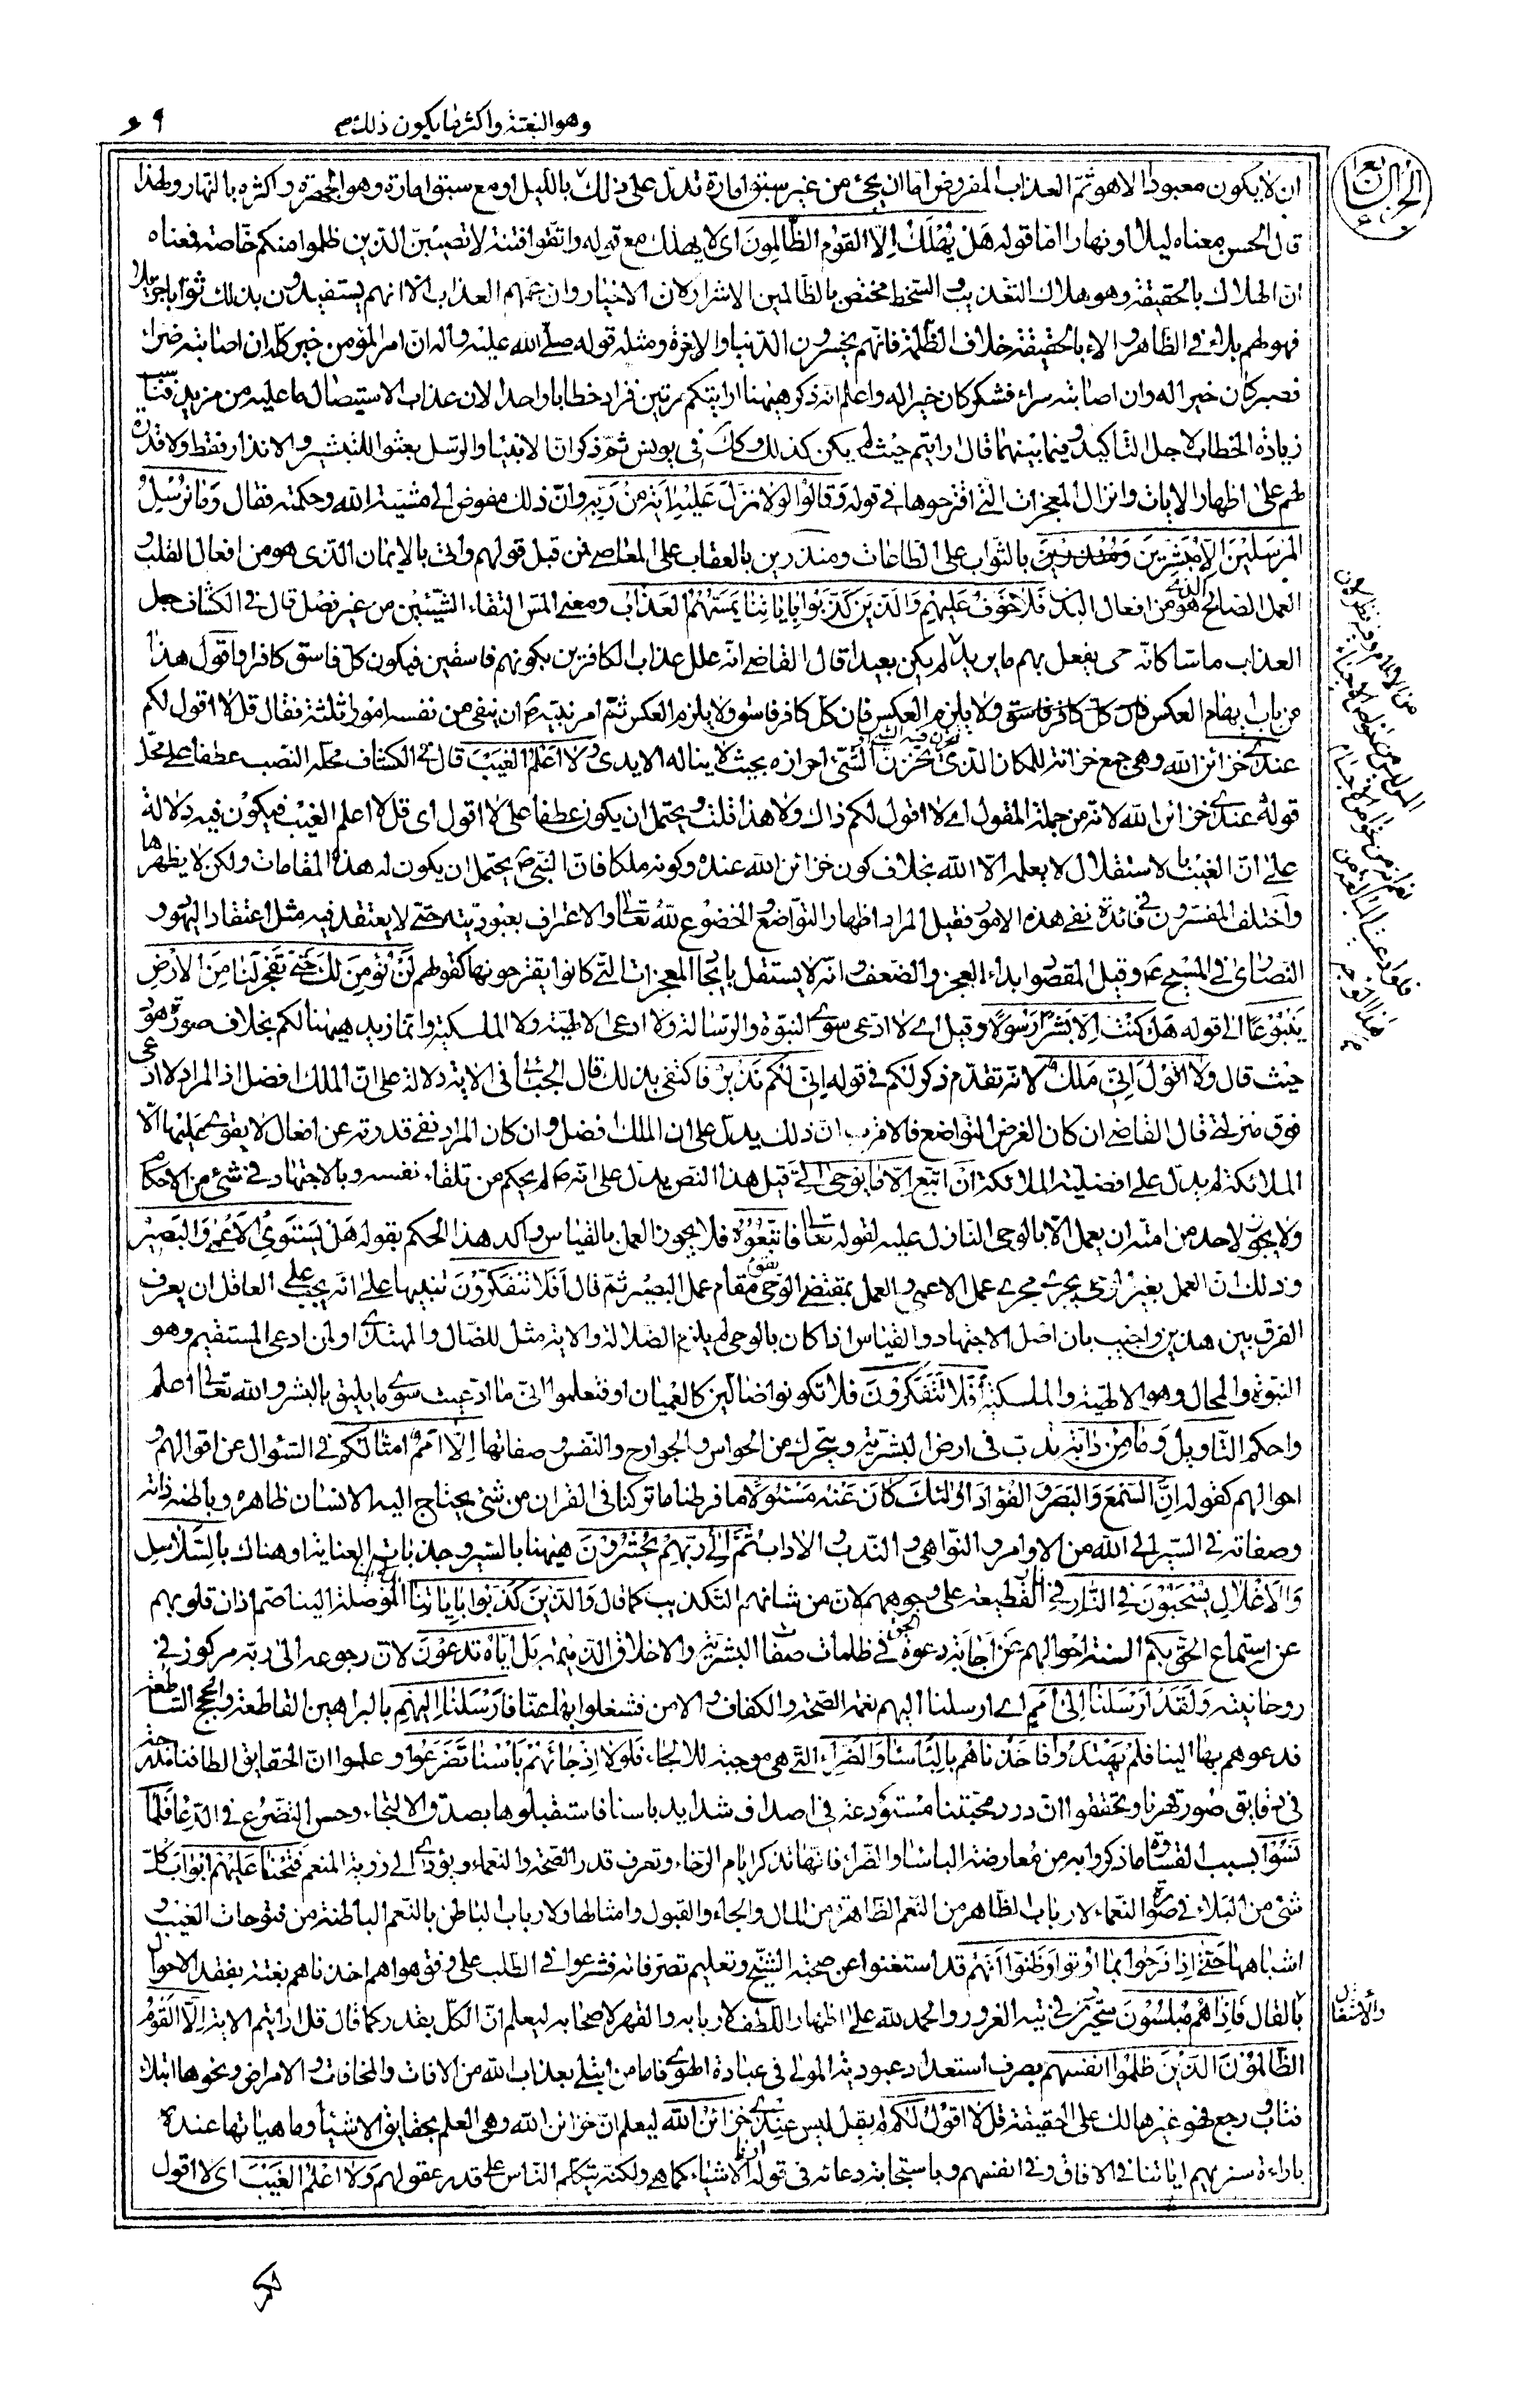 وهو البغتة واكثر ما يكون ذلك م
٩ و
الجزء السابع
ان لا يكون معبودا الا هو ثم العذاب المفروض اما ان يجئ من غير سبق امارة تدل على ذلك بالليل او مع سبق امارة وهو الجهرة واكثره بالنهار ولهذا
قال الحسن معناه ليلا او نهارا اما قوله هَلْ يُهْلَكُ اِلَّا الْقَوْمُ الظَّالِمُونَ اى لا يهلك مع قوله واتقوا فتنة لا تصيبن الذين ظلموا منكم خاصة فمعناه
ان الهلاك بالحقيقة وهو هلاك التعذيب والسخط مختص بالظالمين الاشرار لان الاخيار وان عمهم العذاب الا انهم يستفيدون بذلك ثوابا جزيلا
فهو لهم بلاء فى الظاهر والاء بالحقيقة خلاف الظلمة فانهم يخسرون الدنيا والاخرة ومثله قوله صلى الله عليه واله ان امر المؤمن خير كله ان اصابته ضراء
فصبر كان خيرا له وان اصابته سراء فشكر كان خيرا له واعلم انه ذكر ههنا ارايتكم مرتين فزاد خطابا واحدا لان عذاب الاستيصال ما عليه من مزيد فناسب
زيادة الخطاب لاجل التاكيد وفيما بينهما قال ارايتم حيث لم يكن كذلك وكذا فى يونس ثم ذكر ان الانبياء والرسل بعثوا للتبشير والانذار فقط ولا قدرة
لهم على اظهار الايات وانزال المعجزات التى اقترحوها فى قوله وَقَالُوا لَوْلَا نُزِّلَ عَلَيْهِ اٰيَةٌ مِنْ رَبِّهِ وان ذلك مفوض الى مشيئة الله وحكمته فقال وَمَا نُرْسِلُ
الْمُرْسَلِينَ اِلَّا مُبَشِّرِينَ وَمُنْذِرِينَ بالثواب على الطاعات ومنذرين بالعقاب على المعاصى فمن قبل قولهم واتى بالايمان الذى هو من افعال القلب و
العمل الصالح الذى هو من افعال البدن فَلَا خَوْفٌ عَلَيْهِمْ وَالَّذِينَ كَذَّبُوا بِاٰيَاتِنَا يَمَسُّهُمُ الْعَذَابُ ومعنى المس التقاء الشيئين من غير فصل قال فى الكشاف جعل
العذاب ماسا كانه حى يفعل بهم ما يريد لم يكن بعيدا قال القاضى انه علل عذاب الكافرين بكونهم فاسقين فيكون كل فاسق كافرا واقول هذا
من باب ايهام العكس فان كل كافر فاسق ولا يلزم العكس فان كل كافر فاسق ولا يلزم العكس ثم امر نبيه ص ان ينفى من نفسه امورا ثلثة فقال قل لا اقول لكم
عندى خزائن الله وهى جمع خزانة للمكان الذى يخزن فيه الشئ احرازه بحيث لا يناله الايدى وَلَا اَعْلَمُ الْغَيْبَ قال فى الكشاف محله النصب عطفا على محل
قوله عندى خزائن الله لانه من جملة المقول اى لا اقول لكم ذاك ولا هذا قلت ويحتمل ان يكون عطفا على لا اقول اى قل لا اعلم الغيب فيكون فيه دلالة
على ان الغيب بالاستقلال لا يعلمه الا الله بخلاف كون خزائن الله عنده وكونه ملكا فان النبى ص يحتمل ان يكون له هذه المقامات ولكن لا يظهرها
واختلف المفسرون فى فائدة نفى هذه الامور فقيل المراد اظهار التواضع والخضوع لله تعالى والاعتراف بعبوديته حتى لا يعتقد فيه مثل اعتقاد اليهود و
النصارى فى المسيح ع وقيل المقصود ابداء العجز والضعف وانه لا يستقل بايجاد المعجزات التى كانوا يقترحونها كقولهم لَنْ نُؤْمِنَ لَكَ حَتَّى تَفْجُرَ لَنَا مِنَ الْاَرْضِ
يَنْبُوعًا الى قوله هَلْ كُنْتُ اِلَّا بَشَرًا رَسُولًا وقيل اى لا ادعى سوى النبوة والرسالة ولا ادعى الالهية ولا الملكية وانما زيد ههنا لكم بخلاف سورة هود
حيث قال وَلَا اَقُولُ اِنِّى مَلَكٌ لانه تقدم ذكر لكم فى قوله اِنِّى لَكُمْ نَذِيرٌ فاكتفى بذلك قال الجبائى فى الاية دلالة على ان الملك افضل اذ المراد لا ادعى
فوق منزلتى قال القاضى ان كان الغرض التواضع فالاقرب ان ذلك يدل على ان الملك افضل وان كان المراد نفى قدرته عن افعال لا يقوى عليها الا
الملائكة لم يدل على افضلية الملائكة اِنْ اَتَّبِعُ اِلَّا مَا يُوحَى اِلَىَّ قيل هذا النص يدل على انه ص لم يحكم من تلقاء نفسه وبالاجتهاد فى شئ من الاحكام
ولا يجوز لاحد من امته ان يعمل الا بالوحى النازل عليه لقوله تعالى فَاتَّبِعُوهُ فلا يجوز العمل بالقياس واكد هذا الحكم بقوله هَلْ يَسْتَوِى الْاَعْمَى وَالْبَصِيرُ
وذلك ان العمل بغير الوحى يجرى مجرى عمل الاعمى والعمل بمقتضى الوحى يقوم مقام عمل البصير ثم قال اَفَلَا تَتَفَكَّرُونَ تنبيها على انه يجب على العاقل ان يعرف
الفرق بين هذين واجيب بان اصل الاجتهاد والقياس اذا كان بالوحى لم يلزم الضلالة والاية مثل للضال والمهتدى او لمن ادعى المستقيم وهو
النبوة والمحال وهو الالهية والملكية اَفَلَا تَتَفَكَّرُونَ فلا تكونوا ضالين كالعميان او فتعلموا انى ما ادعيت سوى ما يليق بالبشر والله تعالى اعلم
واحكم التاويل وَمَا مِنْ دَابَّةٍ تدب فى ارض البشرية ويتحرك من الحواس والجوارح والنفس وصفاتها اِلَّا اُمَمٌ امثالكم فى السؤال عن اقوالهم و
احوالهم كقوله اِنَّ السَّمْعَ وَالْبَصَرَ وَالْفُؤَادَ كُلُّ اُولٰئِكَ كَانَ عَنْهُ مَسْئُولًا ما فرطنا ما تركنا فى القران من شئ يحتاج اليه الانسان ظاهره وباطنه ذاته
وصفاته فى السير الى الله من الاوامر والنواهى والندب والاداب ثُمَّ اِلَى رَبِّهِمْ يُحْشَرُونَ ههنا بالسير وجذبات العناية وهناك بالسَّلَاسِلِ
وَالْاَغْلَالِ يُسْحَبُونَ فِى النَّارِ فى القطيعة على وجوههم لان من شانهم التكذيب كما قال وَالَّذِينَ كَذَّبُوا بِاٰيَاتِنَا الموصلة الينا صم اذان قلوبهم
عن استماع الحق بكم السنة احوالهم عن اجابة دعوة الحق فى ظلمات صفات البشرية والاخلاق الذميمة بَلْ اِيَّاهُ تَدْعُونَ لان رجوعه الى ربه مركوز فى
روحانيته وَلَقَدْ اَرْسَلْنَا اِلَى اُمَمٍ اى ارسلنا اليهم نعمة الصحة والكفاف والامن فشغلوا بها عنا فَاَرْسَلْنَا اِلَيْهِمْ بالبراهين القاطعة والحجج الساطعة
فدعوهم بها الينا فَلَمْ يَهْتَدُوا فَاَخَذْنَاهُمْ بِالْبَاْسَاءِ وَالضَّرَّاءِ التى هى موجبة للالتجاء فَلَوْلَا اِذْ جَائَهُمْ بَاْسُنَا تَضَرَّعُوا وعلموا ان الحقايق الطافنا مندرجة
فى دقايق صورة قهرنا وتحققوا ان درر محبتنا مستودعة فى اصداف شدايد باسنا فاستقبلوها بصدق الالتجاء وحسن التضرع فى الدعاء فَلَمَّا
نَسُوا بسبب القساوة ما ذكروا به من معارضة الباساء والضراء فانها تذكر ايام الرخاء وتعرف قدر الصحة والنعماء ويؤدى الى رؤية المنعم فَتَحْنَا عَلَيْهِمْ اَبْوَابَ كُلِّ
شئ من البلاء فى صورة النعماء لارباب الظاهر من النعم الظاهرة من المال والجاه والقبول وامثالها ولارباب الباطن بالنعم الباطنة من فتوحات الغيب و
اشباهها حَتَّى اِذَا فَرِحُوا بِمَا اُوتُوا وَظَنُّوا اَنَّهُمْ قد استغنوا عن صحبة الشيخ وتعليم تصرفاته فشرعوا فى الطلب على وفق هواهم اخذناهم بغتة بفقد الاحوال
والاشتغال
بالقال فَاِذَا هُمْ مُبْلِسُونَ متحيرين فى تيه الغرور والحمد لله على اظهار اللطف لاربابه والقهر لاصحابه ليعلم ان الكل بقدر كما قال قل ارايتم الاية اِلَّا الْقَوْمُ
الظَّالِمُونَ الَّذِينَ ظلموا انفسهم بصرف استعداد عبودية المولى فى عبادة الهوى فاما من ابتلى بعذاب الله من الافات والمخافات والامراض ونحوها ابتلاء
فتاب ورجع فهو غير هالك على الحقيقة قُلْ لَا اَقُولُ لَكُمْ لم يقل ليس عندى خزائن الله ليعلم ان خزائن الله وهى العلم بحقايق الاشياء وماهياتها عنده
باراءة سنريهم اياتنا فى الافاق وفى انفسهم وباستجابة دعائه فى قوله ارنا الاشياء كما هى ولكنه يتكلم الناس على قدر عقولهم وَلَا اَعْلَمُ الْغَيْبَ اى لا اقول
لكم